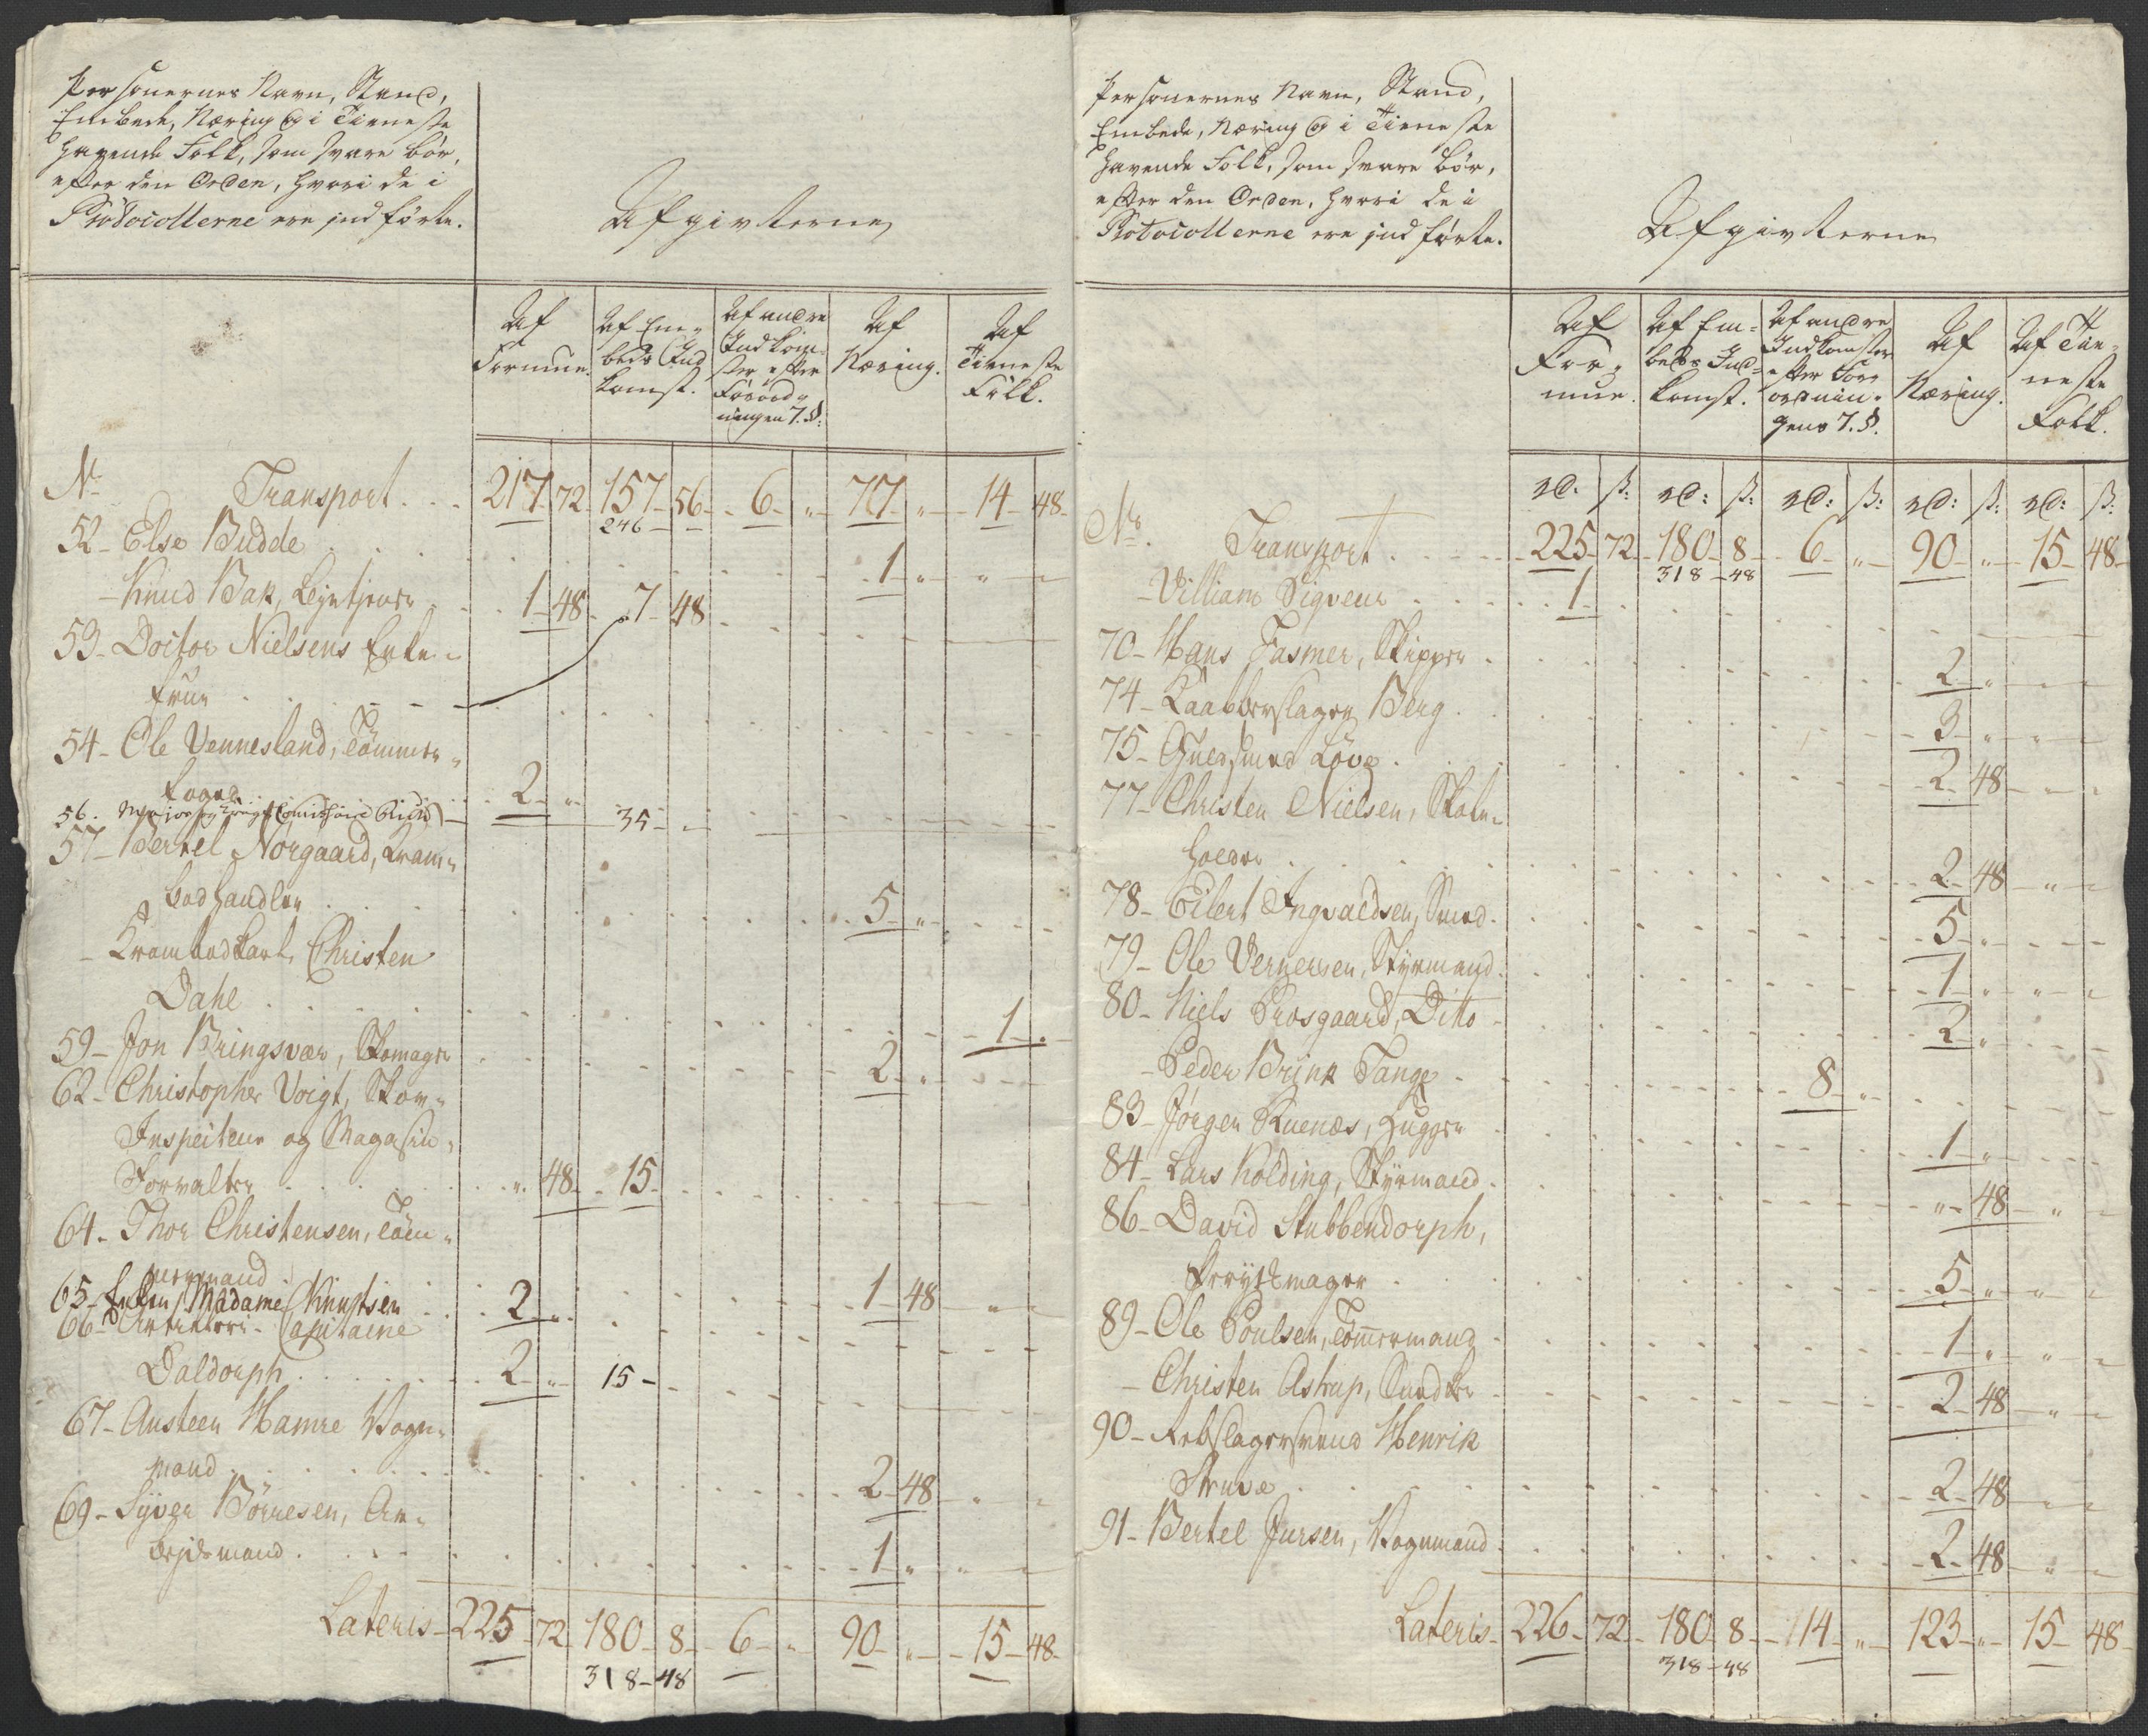 Personernes Navn, Stand,
Embede, Næring og i Tieneste
havende Folk, som svare bør,
efter den Orden, hvori de i
Protocollerne ere indførte.
Afgivterne
Af Formue.
Af Embeds Indkomst.
Af andre Indkomster efter Forordningen 7. §.
Af Næring.
Af Tieneste Folk.
No Transport . . . 217 72 157 56 6 " 77 " 14 48
246
52 Else Budde . . . 1 " "
Knud Bak, . . . 1 48 7 48
53 Doctor Nielsens Enke
frue . . .
54 Ole Vennesland, Tømmer
foged . . . 2 "
56. Major og 35
57 Bertel Norgaard, Kram
bodhandler . . . 5 "
Krambodkarl, Christen
Dahl . . . 1
59 Jon Bringsvær, Skomager 2 "
62 Christopher Voigt, Skov
Inspecteur og Magasin
Forvalter . . . " 48 15
64 Thor Christensen, Tøm
mermand . . . 1 48 "
65 Enken Madame Knudtsen . . . 2 "
66 Artilleri Capitaine
Daldorph . . . 2 " 15
67 Austeen Hamre Vogn
mand . . . 2 48 "
69 Syver Børresen, Ar
bejdsmand . . . 1 " "
Lateris 225 72 180 8 6 " 90 " 15 48
318 48
Personernes Navn, Stand,
Embede, Næring og i Tieneste
havende Folk, som svare bør,
efter den Orden, hvori de i
Protocollerne ere indførte.
Afgivterne
Af Formue.
Af Embeds Indkomst.
Af andre Indkomster efter Forordningens 7. §.
Af Næring.
Af Tieneste Folk.
rd: ß: rd: ß: rd: ß: rd: ß: rd: ß:
No. Transport . . . 225 72 180 8 6 " 90 " 15 48
318 48
Villiam Sigveur . . . 1
70 Hans Fasmer, Skipper . . . 2 "
74 Kaabberslager Berg . . . 3 " "
75 Guldsmed Løve . . . 2 48
77 Christen Nielsen, Skole
holder . . . 2 48 "
78 Eilert Ingvaldsen, Smed . . . 5 "
79 Ole Vernersen, Styrmand . . . 1 " "
80 Niels Prosgaard, Ditto 2 "
Peder Brink Tange . . . 8 "
83 Jørgen Knenæs, Hugger . . . 1 "
84 Lars Kolding, Styrmand . . . " 48 "
86 David Stubbendorph,
Parykmager . . . 5 " "
89 Ole Poulsen, Tømmermand 1 " "
Christen Astrup, Snedker 2 48 "
90 Rebslagersvend Henrik
Struve . . . 2 48 "
91 Bertel Jursen, Vognmand . . . 2 48 "
Lateris 226 72 180 8 14 " 123 " 15 48
318 48